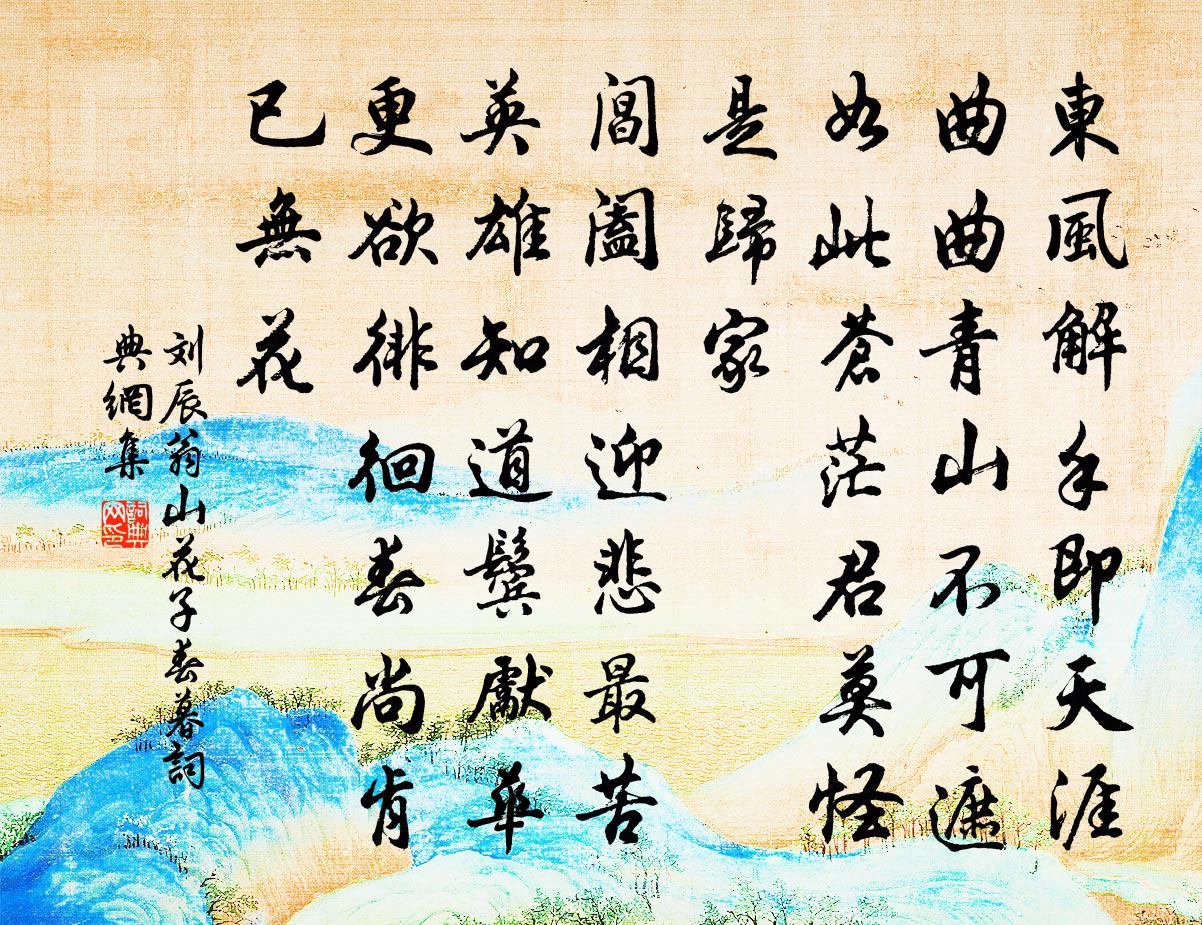 東風解手即天涯
曲曲青山不可遮
如此蒼茫君莫怪
是歸家
閶闔相迎悲最苦
英雄知道鬓獻華
更欲徘徊春尚肯
已無花
刘辰翁山花子春暮詞
典網集
詞典
网印